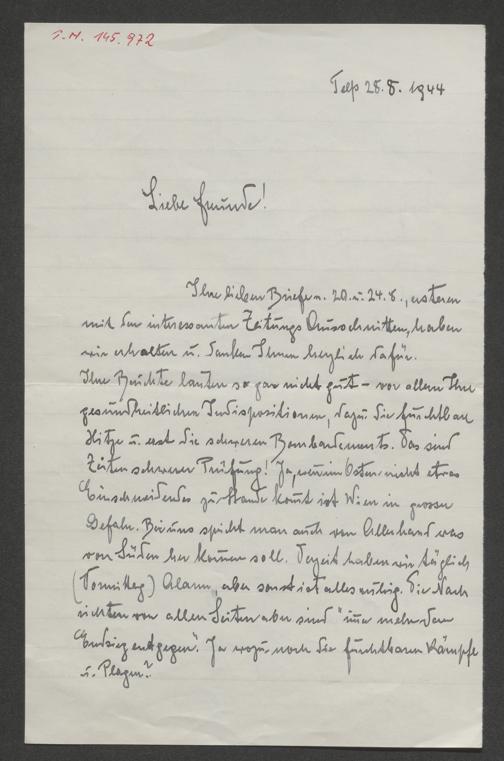 I.N. 145.972
Telfs 28.8.1944
Liebe Freunde!
Ihre lieben Briefe v. 20. u. 24.8., ersteren
mit den interessanten Zeitungs Ausschnitten, haben
wir erhalten u. danken Ihnen herzlich dafür.
Ihre Berichte lauten so gar nicht gut – vor allem Ihre
gesundheitlichen Indispositionen, dazu die furchtbare
Hitze u. erst die schweren Bombardements. Das sind
Zeiten schwerer Prüfung! Ja, wenn im Osten nicht etwas
Einschneidendes zu Stande kommt ist Wien in grosser
Gefahr. Bei uns spricht man auch von Allerhand was
von Süden her kommen soll. Derzeit haben wir täglich
(Vormittag) Alarm, aber sonst ist alles ruhig. Die Nach
richten von allen Seiten aber sind "immer mehr dem
Endsieg entgegen". Ja wozu noch die furchtbaren Kämpfe
u. Plagen?